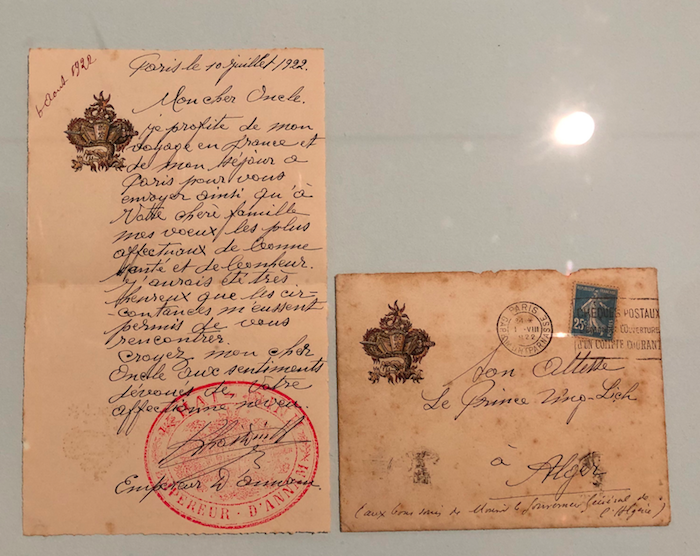 6 Aout 1922
Paris le 10 juillet 1922.
Mon cher Oncle.
je profite de mon
voyage en france et
de mon séjour a
Paris pour vous
envoyer ainsi qu'à
Votre chère famille
mes voeux les plus
affectueux de bonne
santé et de bonheur.
j'aurais été très
heureux que les cir-
constances m'eussent
permis de vous
rencontrer.
Croyez, mon cher
Oncle aux sentiments
dévoués de votre
affectionné neveu.
Empereur d'annam
KHAI-DINH
EMPEREUR - D'ANNAM
PARIS
GARE MONTPARNASSE
1 - VIII
1922
25c
CHEQUES POSTAUX
COUVERTURE
D'UN COMPTE COURANT
Son Altesse
Le Prince Ung-Lich
à
Alger
(aux bons soins de Monsr le Gouverneur Général de
l'Algérie)